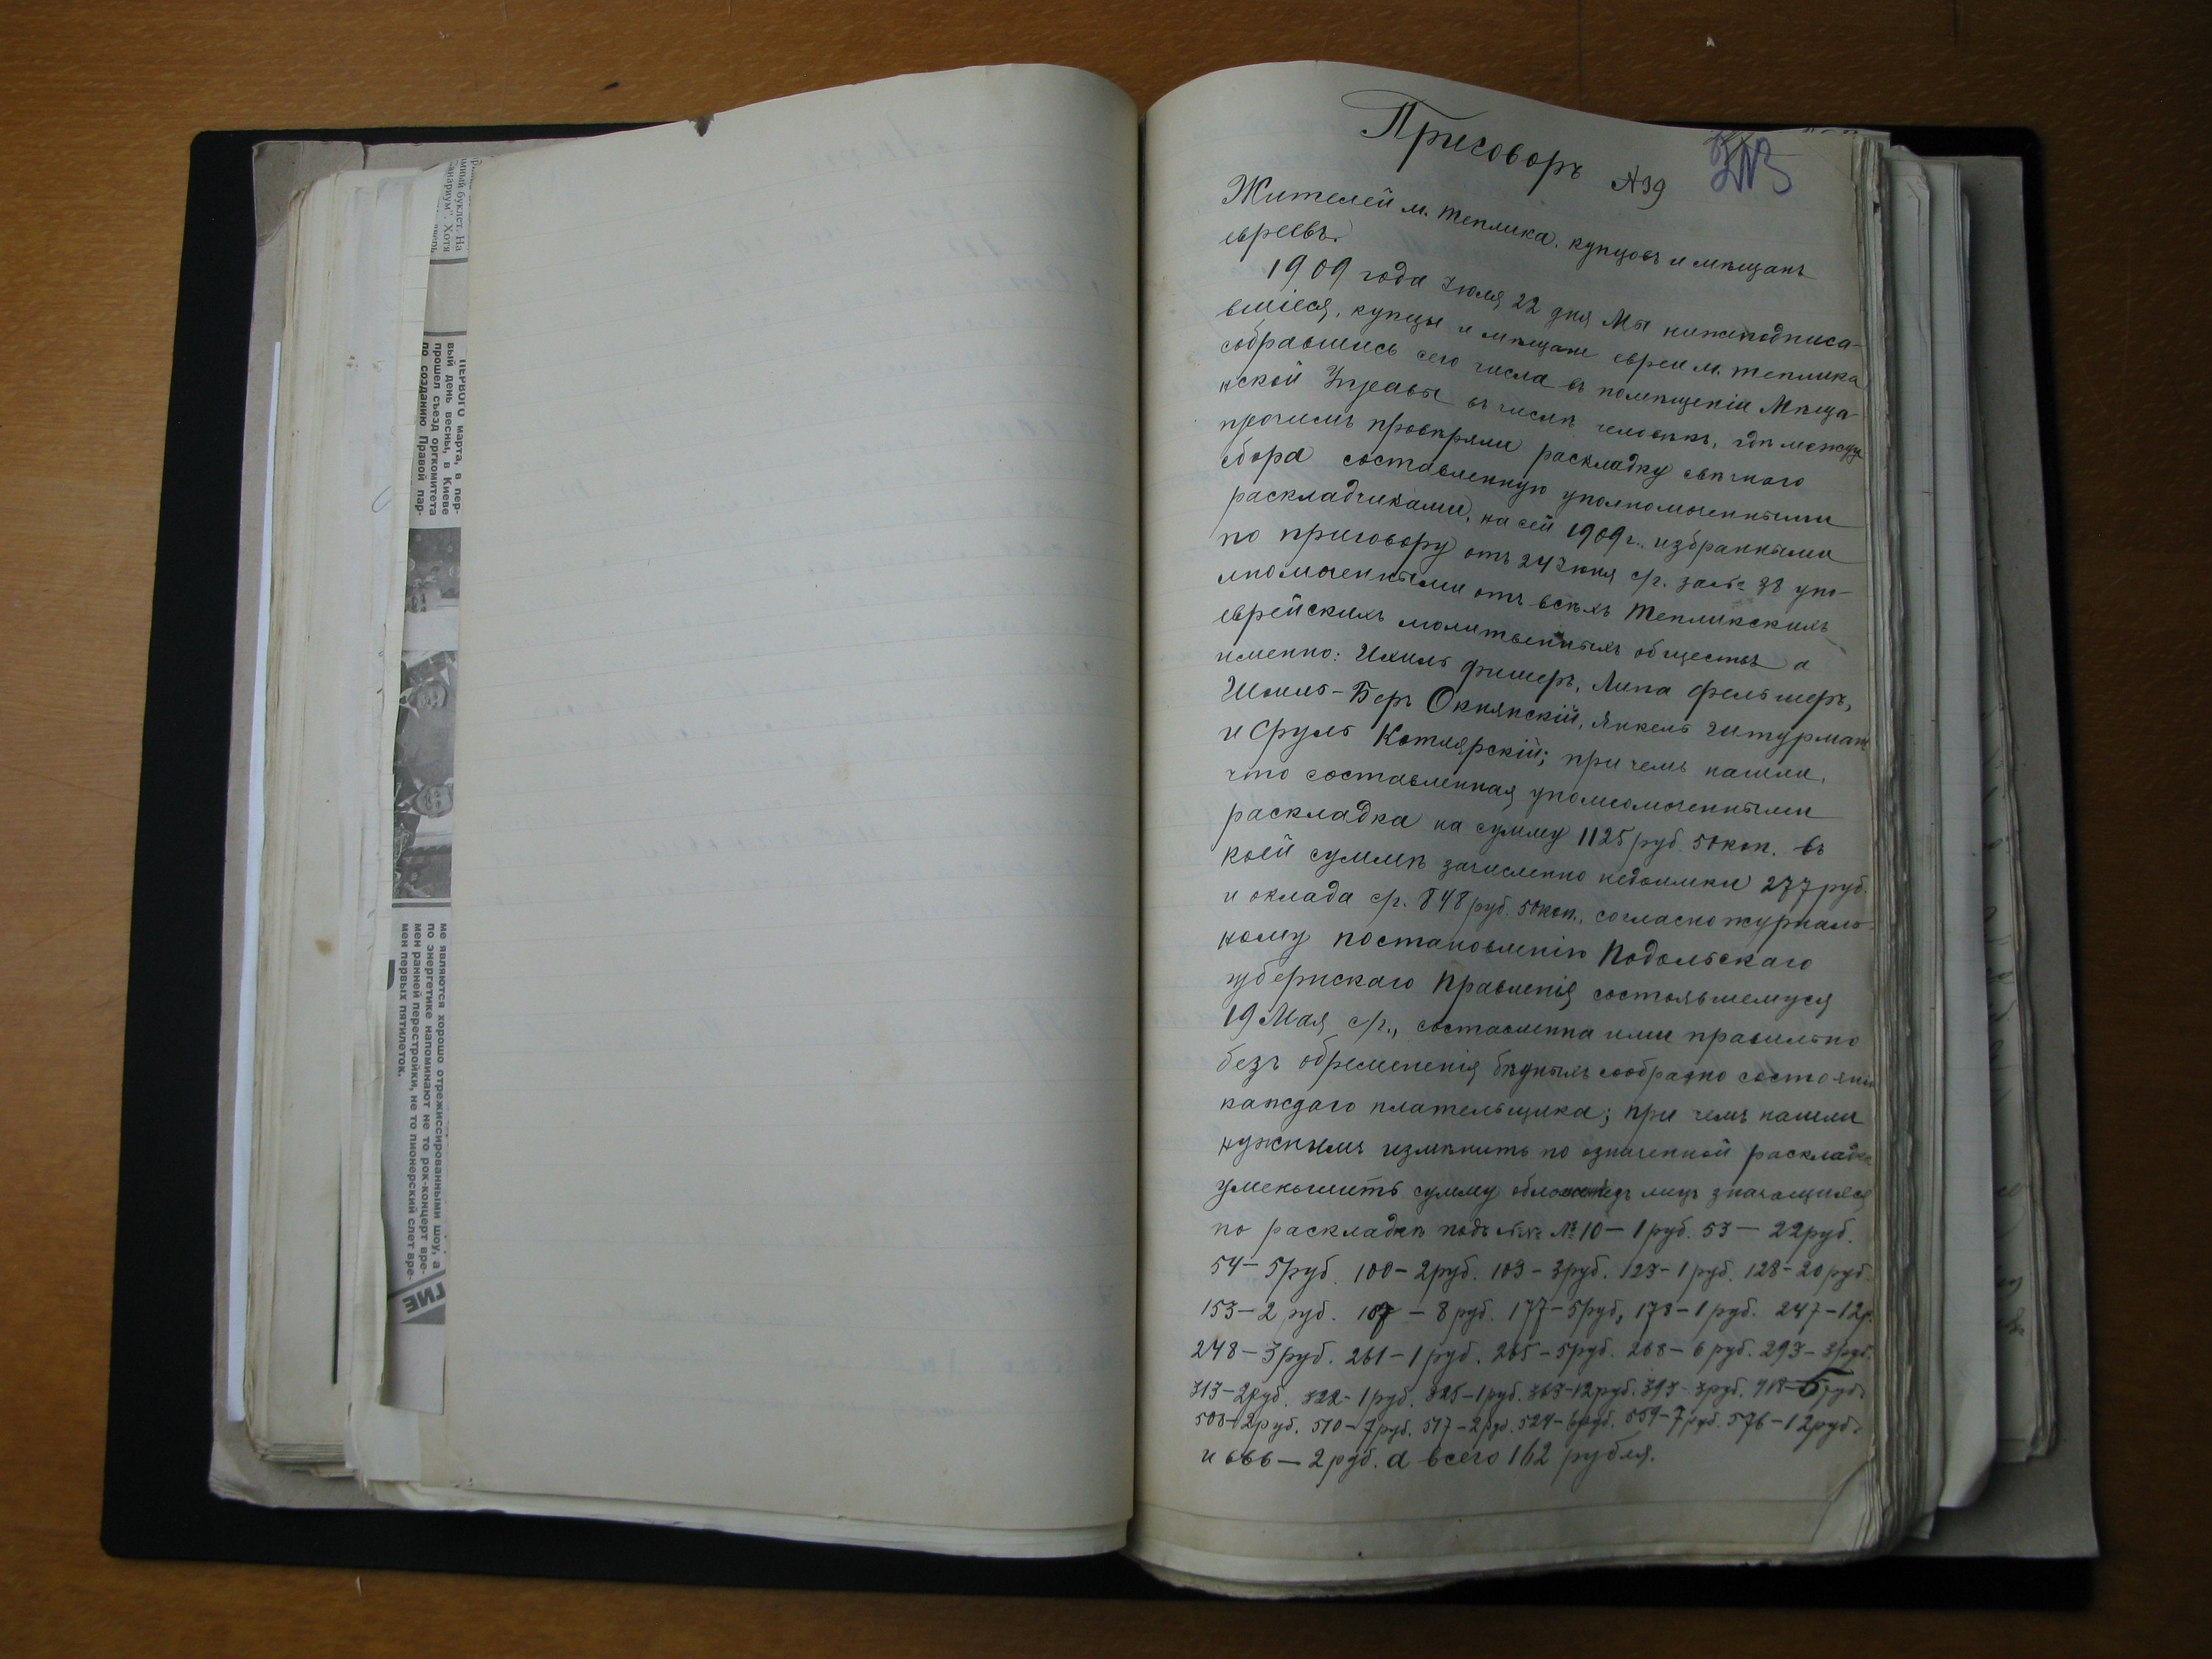 Приговоръ
№ 39
Жителей м. Теплика, купцовъ и мѣщанъ
евреевъ.
1909 года Іюля 22 дня Мы нижеподписа-
вшіеся, купцы и мѣщане евреи м. Теплика
собравшись сего числа въ помѣщеніи Мѣща-
нской Управы въ числѣ человѣкъ, гдѣ между
прочимъ провѣряли раскладку свѣчного
сбора составленную уполномоченными
раскладчиками, на сей 1909 г., избранными
по приговору отъ 24 Іюня с/г. за № 38 упо-
лномоченными отъ всѣхъ Тепликскихъ
еврейскихъ молитвенныхъ обществъ а
именно: Ихиль Фишеръ, Липа Фельдмеръ,
Шоиль-Беръ Окнянскій, Янкель Штурман
и Сруль Котлярскій; при чемъ нашли,
что составленная уполномоченными
раскладка на сумму 1125 руб. 50 коп. въ
коей суммѣ зачисленно недоимки 277 руб.
и оклада с/г. 848 руб. 50 коп., согласно журналь-
ному постановленію Подольскаго
губернскаго Правленія состоявшемуся
19 Мая с/г., составленна ими правильно
безъ обремененія бѣдныхъ сообразно состоянія
каждаго плательщика; при чемъ нашли
нужнымъ измѣнить по означенной раскладкѣ
уменьшить сумму лицъ значащихся
по раскладкѣ подъ №№ 10 — 1 руб. 53 — 22 руб.
54 — 5 руб. 100 — 2 руб. 109 — 3 руб. 123 — 1 руб. 128 — 20 руб.
153 — 2 руб. 167 — 8 руб. 177 — 5 руб, 178 — 1 руб. 247 — 12 р.
248 — 3 руб. 261 — 1 руб. 265 — 5 руб. 268 — 6 руб. 293 — 3 руб.
313 — 2 руб. 322 — 1 руб. 325 — 1 руб. 363 — 12 руб. 393 — 3 руб. 418 — 5 руб.
506 — 2 руб. 510 — 7 руб. 517 — 2 руб. 524 — 6 руб. 559 — 7 руб. 576 — 12 руб.
и 666 — 2 руб. а всего 162 рубля.
ПЕРВОГО марта, в пер-
вый день весны, в Киеве
прошел съезд оргкомитета
по созданию Правой пар-
ме являются хорошо отрежиссированными шоу, а
по энергетике напоминают не то рок-концерт вре-
мен ранней перестройки, не то пионерский слет вре-
мен первых пятилеток.